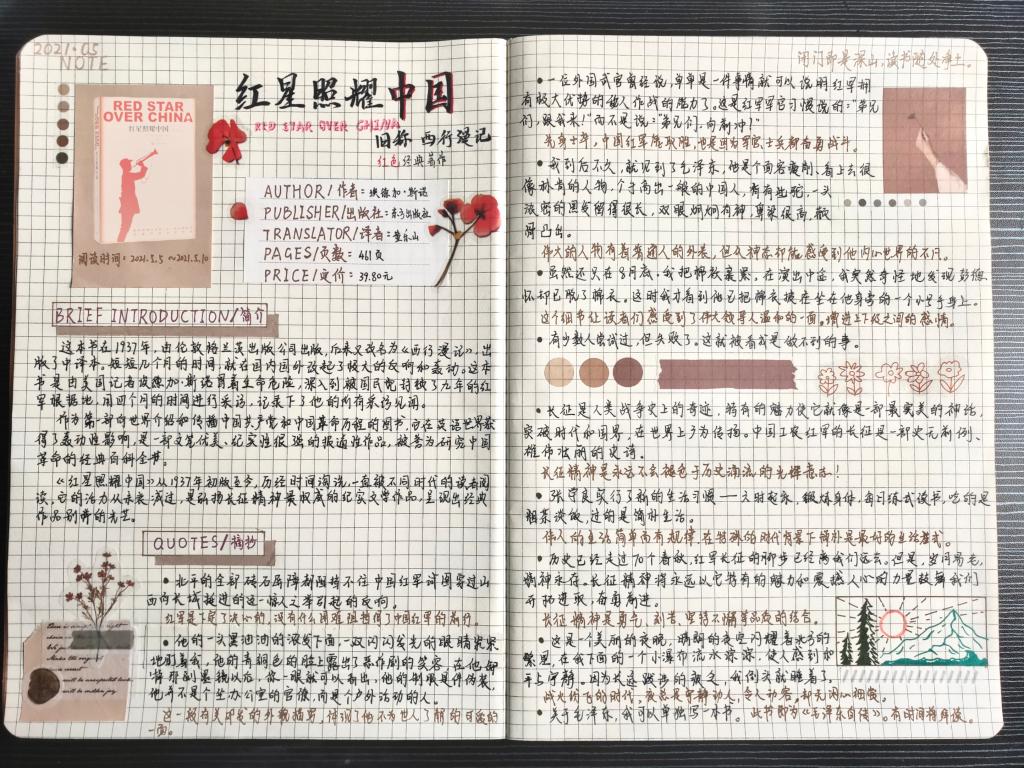 2021.05
NOTE
RED STAR
OVER CHINA
红星照耀中国
阅读时间：2021.5.5 ~2021.5.10
红星照耀中国
RED STAR OVER CHINA
旧称 西行漫记
红色经典著作
AUTHOR/作者：埃德加·斯诺
PUBLISHER/出版社：东方出版社
TRANSLATOR/译者：董乐山
PAGES/页数：461页
PRICE/定价：39.80元
BRIEF INTRODUCTION/简介
这本书在1937年，由伦敦格兰茨出版公司出版，后来又改名为《西行漫记》，出
版了中译本。短短几个月的时间，就在国内国外改起了极大的反响和轰动。这本
书是由美国记者埃德加·斯诺冒着生命危险，深入到被国民党封锁了九年的红
军根据地，用四个月的时间进行采访，记录下了他的所有采访见闻。
作为第一部向世界介绍和传播中国共产党和中国革命历程的图书，它在英语世界获
得了轰动性影响，是一部文笔优美、纪实性很强的报道性作品，被誉为研究中国
革命的经典百科全书。
《红星照耀中国》从1937年初版至今，历经时间淘洗，一直被不同时代的读者阅
读，它的活力从未衰减过，是弘扬长征精神最权威的纪实文学作品，呈现出经典
作品别样的光芒。
QUOTES/摘抄
●北平的全部砖石屏障都阻挡不住中国红军讨图穿过山
西向长城挺进的这一惊人之举引起的反响。
红军是下定了决心的，没有什么困难阻挡得了中国红军的前行。
●他的一头黑油油的浓发下面，一双闪闪发光的眼睛紧紧
地盯着我，他的青铜色的脸上露出了恶作剧的笑容，在他卸
他可不是个坐办公室的官僚，而是个户外活动的人。
一面。
闭门即是深山，读书随处净土。
●一位外国武官曾经说，单单是一件事情就可以说明红军拥
有极大优势的敌人作战的能力了，这是红军军官习惯说的："弟兄
们，跟我来！"而不是说："弟兄们，向前冲！"
●我到后不久，就见到了毛泽东，他是个面容瘦削、看上去很
像林肯的人物，个子高出一般的中国人，背有些驼，一头
浓密的黑发留得很长，双眼炯炯有神，鼻梁很高，颧
骨凸出。
伟大的人物有着普通人的外表，但从神态却能感受到他内心世界的不凡。
●虽然还只在8月底，我把棉袄裹紧，在演出中途，我突然奇怪地发现彭德
怀却已脱了棉衣。这时我才看到他已把棉衣披在坐在他身旁的一个小号手身上。
这个细节让读者们感受到了伟大领导人温和的一面。增进上下级之间的感情。
●有少数人尝试过，但失败了。这就被看成是做不到的事。
●长征是人类战争史上的奇迹，特有的魅力使它就像是一部最完美的神话，
突破时代和国界，在世界上广为传扬。中国工农红军的长征是一部史无前例、
雄伟壮丽的史诗。
长征精神是永远不会褪色于历史潮流的光辉意志！
粗茶淡饭，过的是简朴生活。
伟人的生活简单而有规律，在特殊的时代背景下简朴是最好的生活范式。
●历史已经走过70个春秋，红军长征的脚步已经离我们远去。但是，岁月易老，
精神永存。长征精神将永远以它特有的魅力和震撼人心的力量鼓舞我们
开拓进取，奋勇前进。
长征精神是勇气、刻苦、坚持不懈等品质的结合。
●这是个美丽的夜晚，晴朗的夜空闪耀着北方的
繁星，在我下面的一个小瀑布流水淙淙，使人感到和
平与宁静。因为长途跋涉的疲乏，我倒头就睡着了。
●关于毛泽东，我可以单独写一本书。此书即为《毛泽东自传》。有时间将拜读。